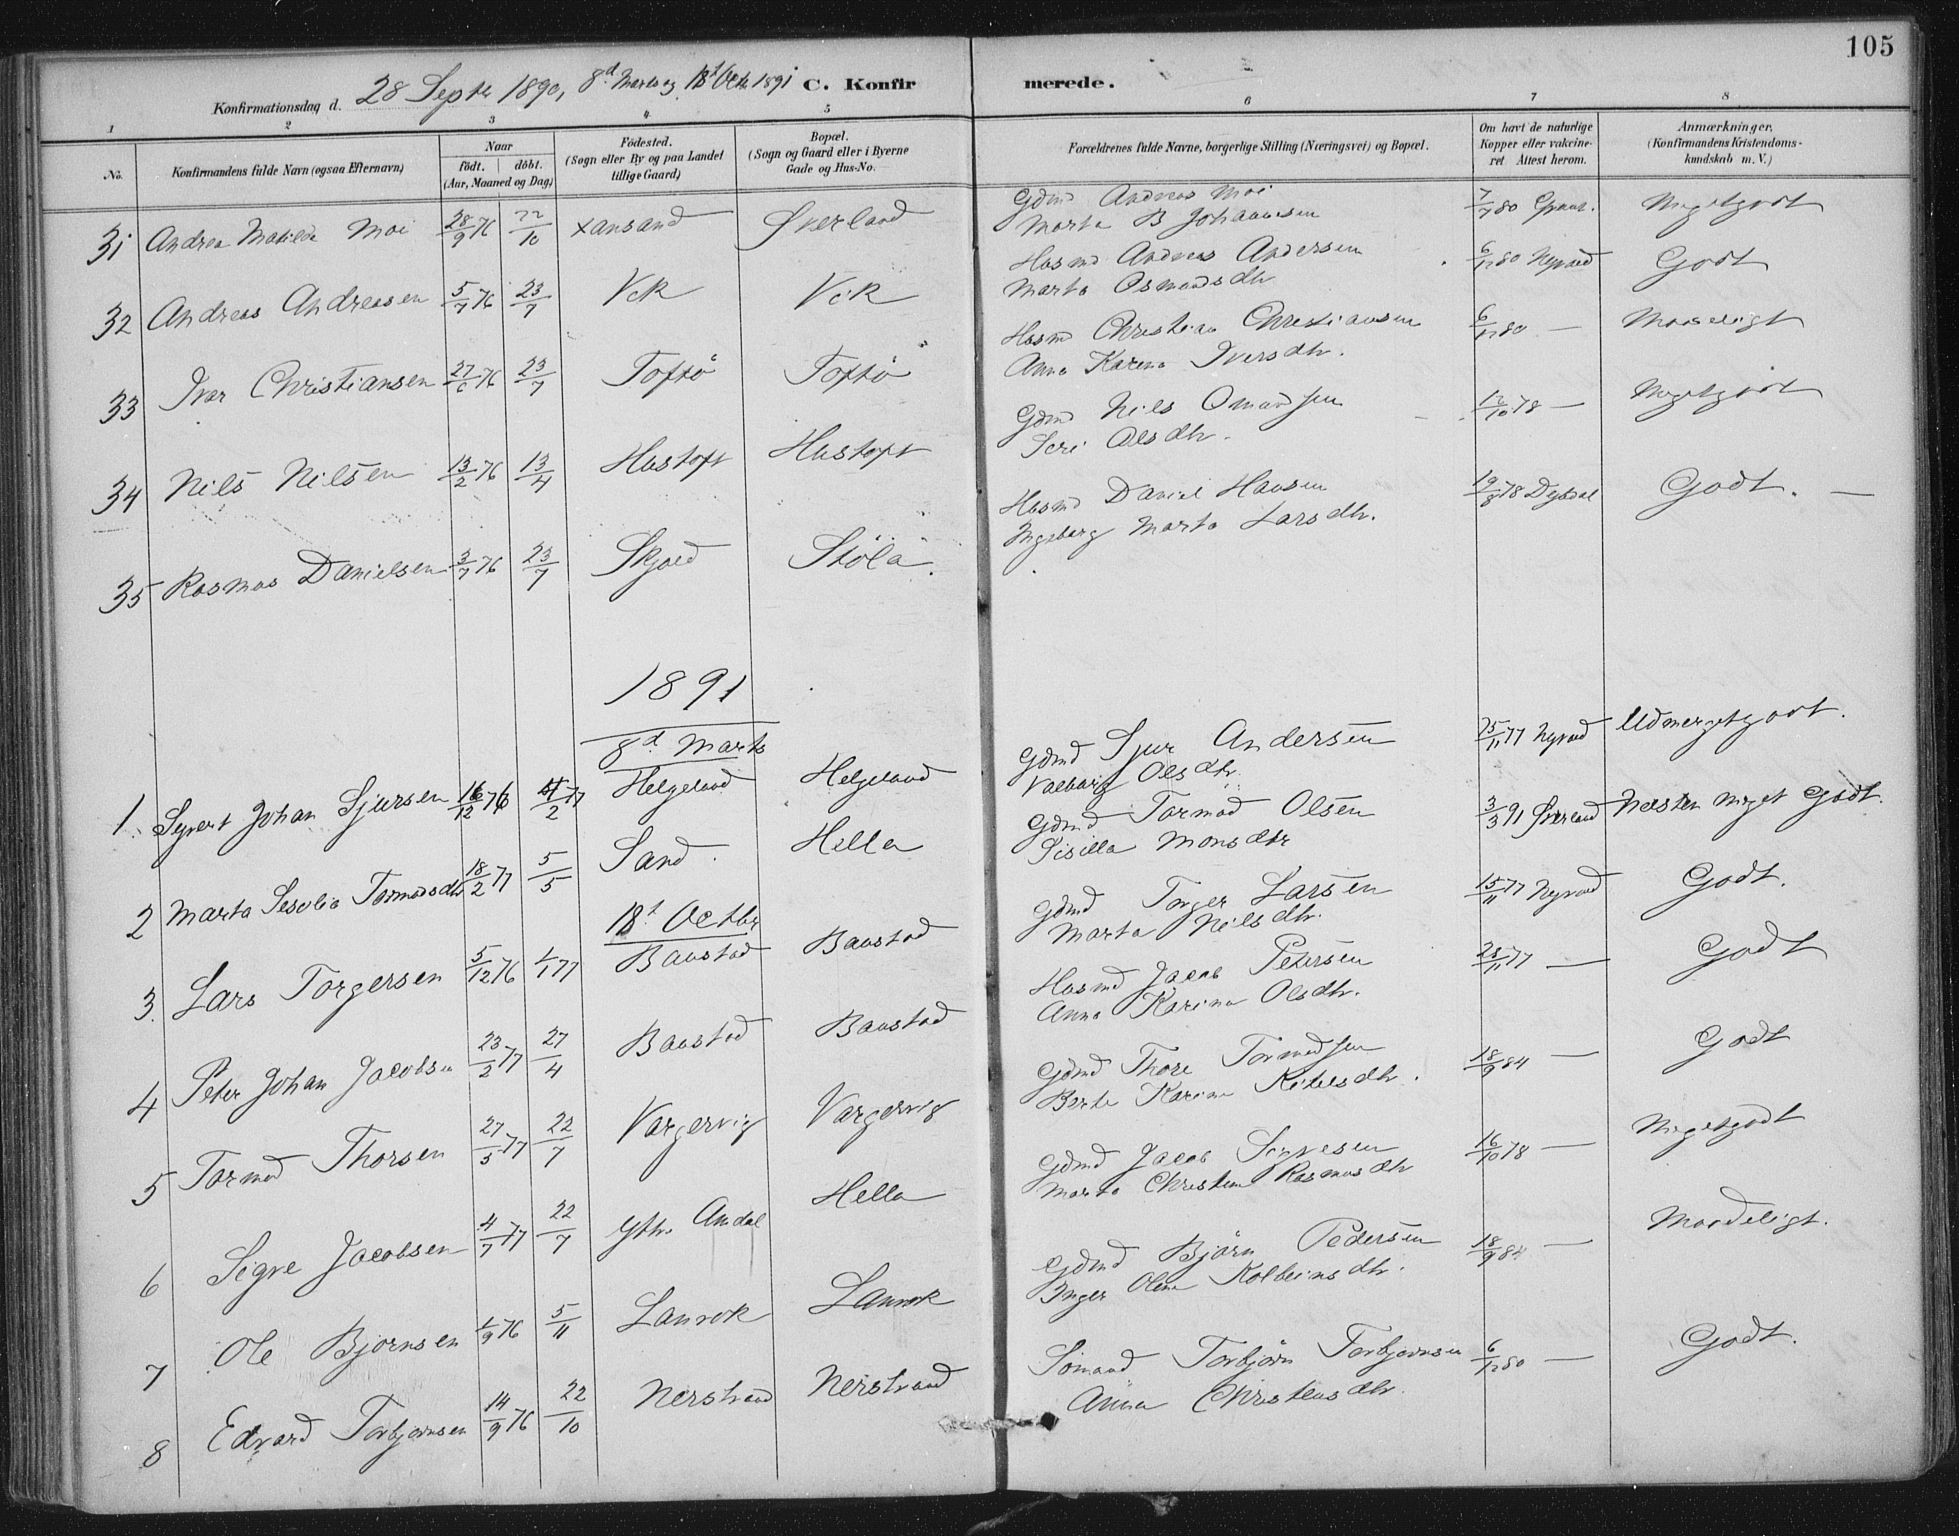 105
Konfirmationsdag d. 28 Septbr 1890, 8d Marts og 18t Octb 1891 C. Konfirmerede.
1 2 3 4 5 6 7 8
No. Konfirmandens fulde Navn (ogsaa Efternavn) Naar födt. döbt. (Aar, Maaned og Dag) Födested. (Sogn eller By og paa Landet tillige Gaard) Bopæl. (Sogn og Gaard eller i Byerne Gade og Hus-No. Forældrenes fulde Navne, borgerlige Stilling (Næringsvei) og Bopæl. Om havt de naturlige Kopper eller vakcineret Attest herom. Anmærkninger. (Konfirmandens Kristendomskundskab m. V.)
31 Andrea Matilda Moi 28/9 76 22/10 Xansand Øverland Gdmd Andreas Moi 7/7 80 Meget godt
Marta B Johannesen
32 Andreas Andreasen 5/7 76 23/7 Vik Vik Husmd Andreas Andersen 6/12 80 Nyvold Godt
Marta Osmundsdtr
33 Ivar Christiansen 27/6 76 23/7 Toftö Toftö Husmd Christian Christiansen 6/12 80 — Maadeligt
Anna Karina Iversdtr.
34 Nils Nilsen 13/2 76 13/4 Hustoft Hustoft Gdmd Nils Omundsen 12/10 78 — Megetgodt
Seri Olsdtr.
35 Rasmus Danielsen 3/7 76 23/7 Skjold Stölá Husmd Daniel Hansen 19/8 78 Dysdal Godt. —
Ingeborg Marta Larsdtr.
1891
8d Marts
1. Syvert Johan Sjursen 16/12 76 4/2 77 Helgeland Helgeland Gdmd Sjur Andersen 25/11 77 Nyvold Udmerget godt.
Valborg Olsdtr.
2 Marta Sesilia Tormodsdtr 18/2 77 5/5 Sand Hella Gdmd Tormod Olsen 3/3 91 Øverland Nesten meget Godt.
Sisilla Monsdtr
18t Octbr
3. Lars Torgersen 5/12 76 1/1 77 Baustad Baustad Gdmd Torger Larsen 15/11 77 Nyvold Godt.
Marta Nilsdtr.
4 Peter Johan Jacobsen 23/3 77 27/4 Baustad Baustad Husmd Jacob Petersen 28/11 77 — Godt
Anna Karina Olsdtr.
5 Tormod Thorsen 27/5 77 22/7 Vargervig Vargervig Gdmd Thore Tormodsen 18/9 84 — Godt
Berte Karine Ketelsdtr.
6 Sigve Jacobsen 4/7 77 22/7 Ytre Amdal Hella Gdmd Jacob Sigvesen 16/10 78 — Megetgodt
Marta Christine Rasmusdtr
7 Ole Bjornsen 1/9 76 5/11 Lanvek Lanvek Gdmd Björn Pedersen 18/9 84 — Maadeligt.
Inger Olene Kolbeinsdtr.
8 Edvard Torbjornsen 14/9 76 22/10 Nerstrand Nerstrand Sömand Torbjörn Torbjornsen 6/12 80 — Godt.
Anna Christensdtr.